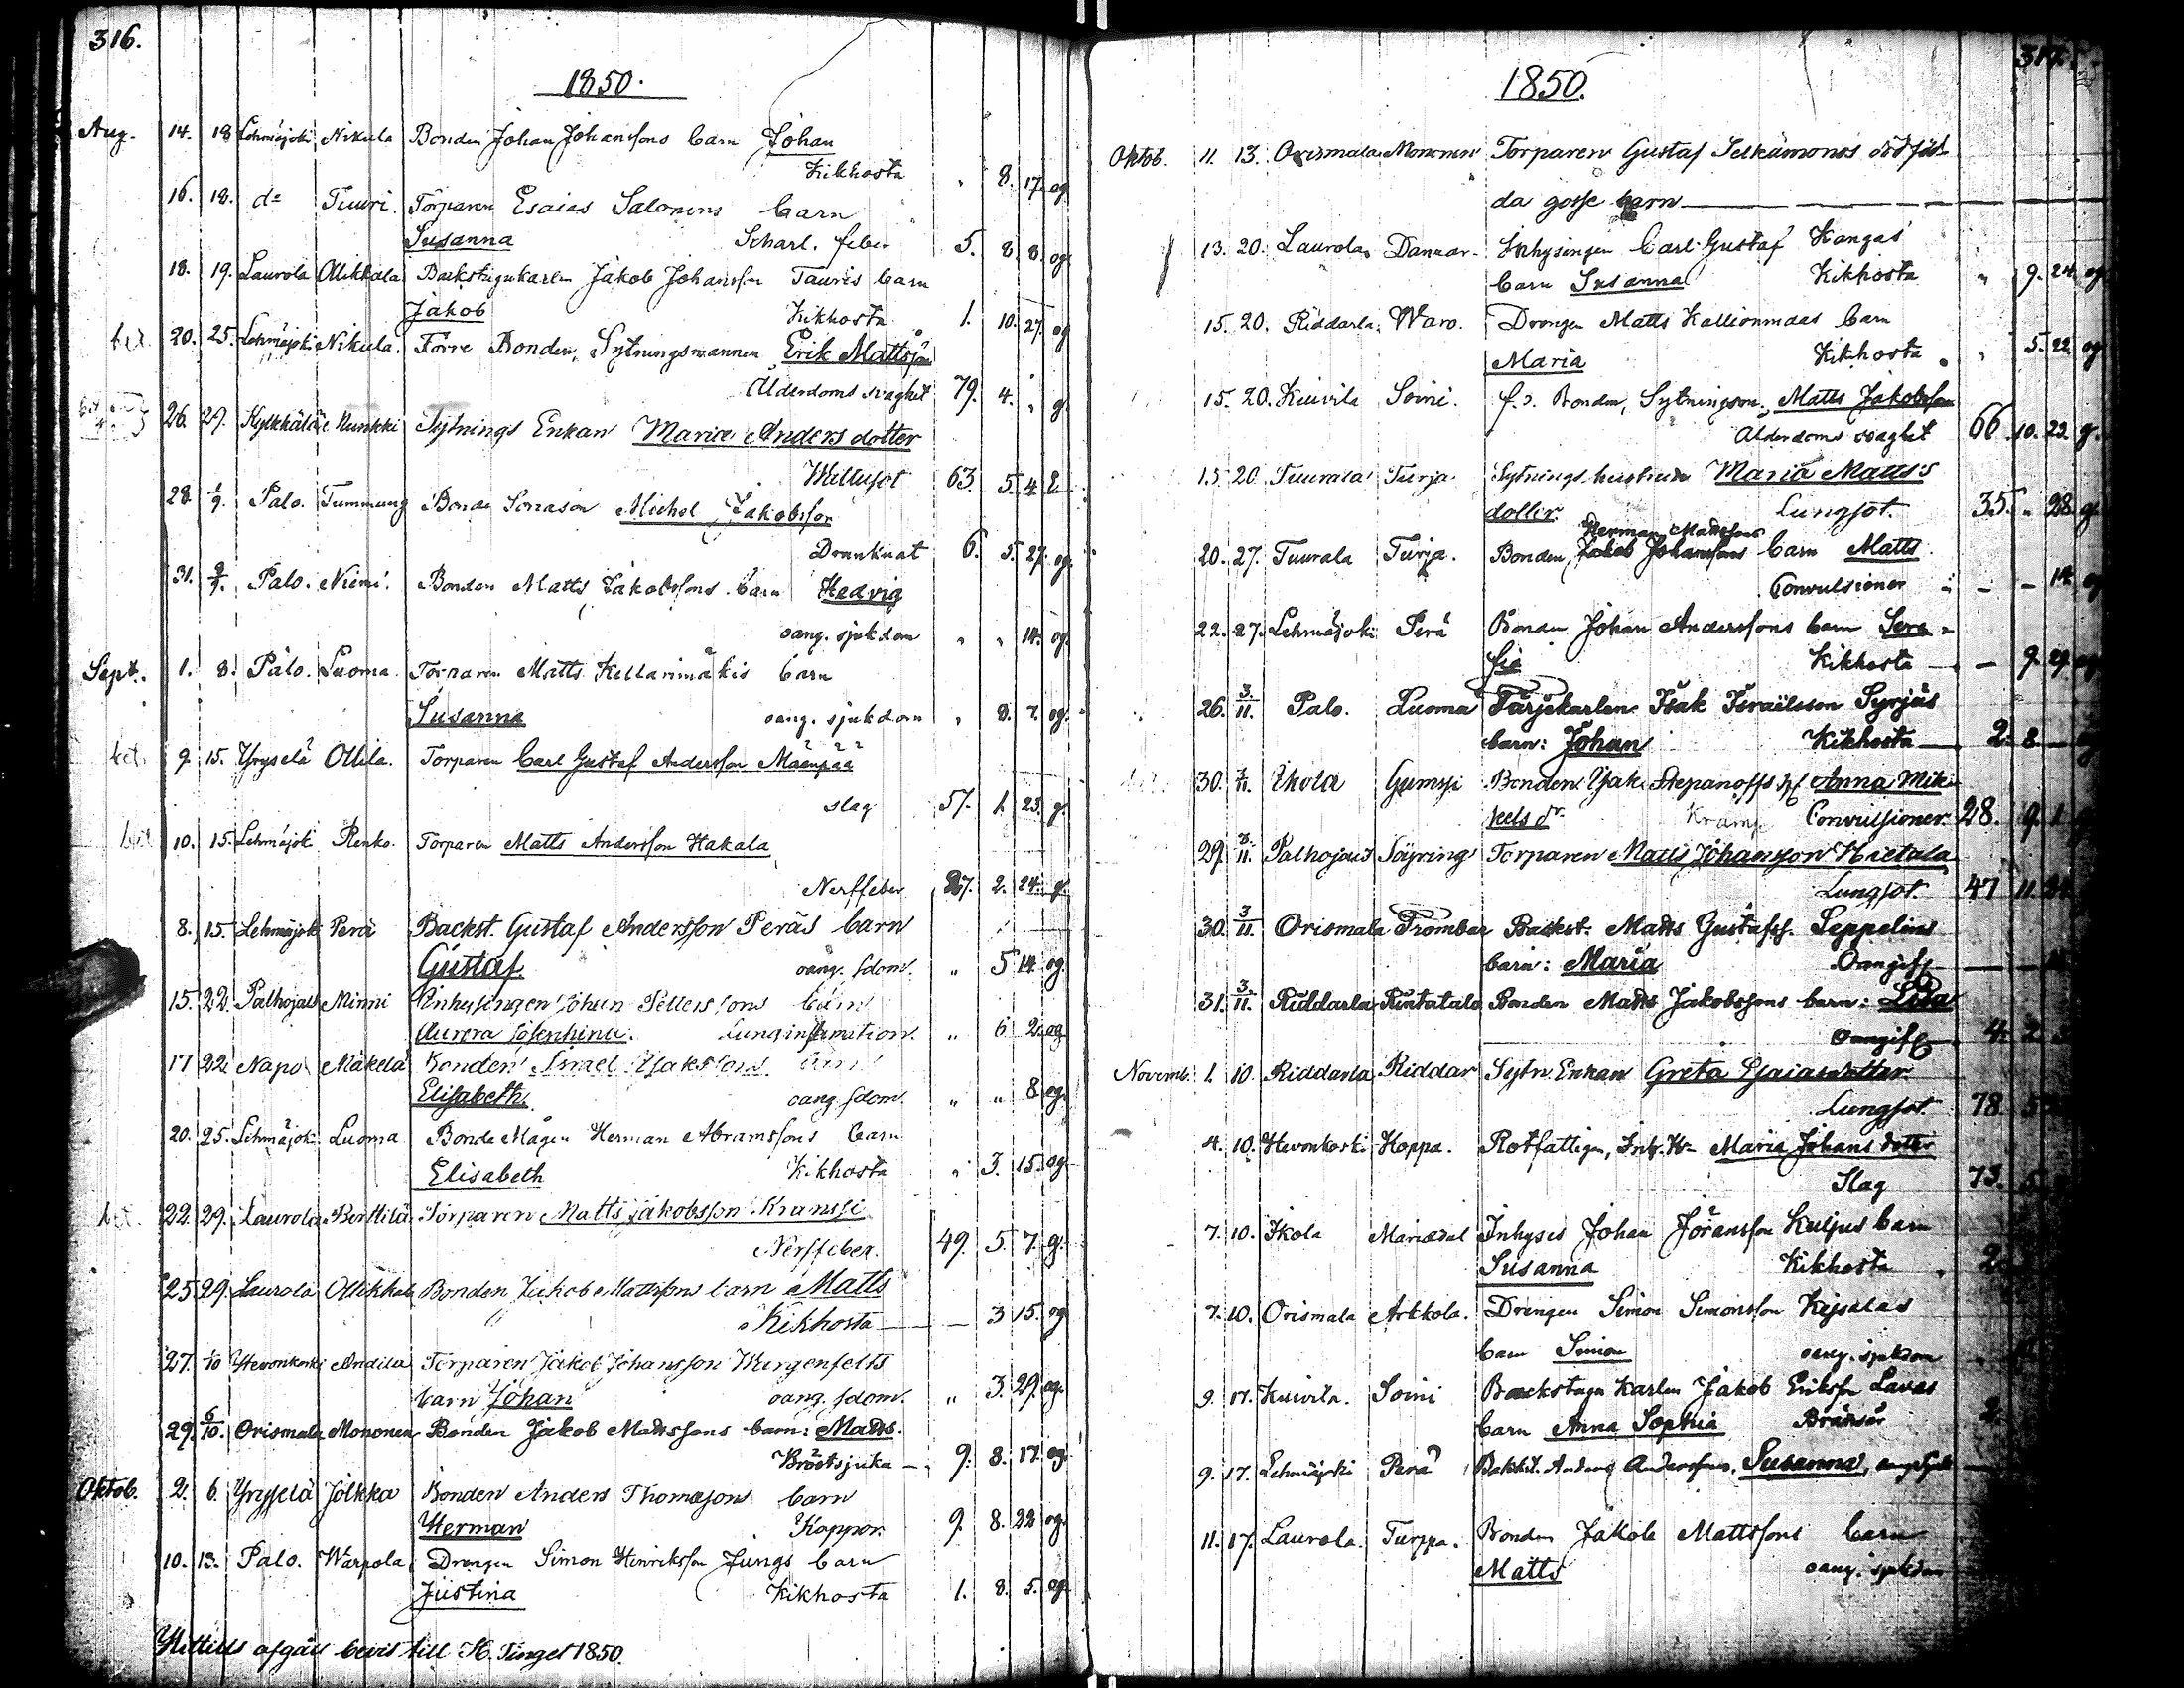 316.
1850.
Aug. 14. 18 Lehmäjoki Nikula Bonden Johan Johanssons barn Johan
Kikhosta " 8. 17. og
16. 18. do Tuuri. Torparen Esaias Salonens barn
Susanna Scharl. feber 5. 8 8. og
18. 19. Laurola Ollikkala Backstugukarlen Jakob Johansson Tauris barn
Jakob Kikhosta 1. 10. 27. og
bet. 20. 25. Lehmäjoki Nikula. Förre Bonden, Sytningsmannen Erik Mattsson
Ålderdoms svaghet 79. 4. " g.
26. 27. Kylkkälä Munkki Sytnings Enkan Maria Anders dotter
63. 5. 4 E
28. 1/9. Palo. Tummung Bonde Sonason Michel Jakobsson
Drunknat 6. 5. 27. og
31. 8/9. Palo. Niemi. Bonden Matts Jakobssons barn Hedvig
oang. sjukdom " " 14. og.
Sept. 1. 8. Palo. Luoma Torparen Matts Kellarimäkis barn
Susanna oang. sjukdom " 8. 7. og.
bet. 9. 15. Yryselä Ollila. Torparen Carl Gustaf Andersson Mäenpää
slag 57. 1. 23. g.
10. 15. Lehmäjoki Renko. Torparen Matts Andersson Hakala
Nerffeber 37. 2. 24. g.
8. 15. Lehmäjoki Perä Backst. Gustaf Andersson Peräs barn
Gustaf oang. sdom. " 5 14. og.
15. 22. Palhojais Minni Inhysingen Johan Petterssons barn
Aurora Josephina. Lunginflamation. " 6 2. og
17 22 Napo Mäkelä Bonden Israel Isakssons barn
Elisabeth. oang. sdom. " " 8 og.
20. 25. Lehmäjoki Luoma Bonde Mågen Herman Abramssons barn
Elisabeth Kikhosta " 3. 15. og
bet. 22. 29. Laurola Berttilä Torparen Matts Jakobsson Kranssi
Nerffeber. 49. 5. 7. g.
25 29. Laurola Ollikkala Bonden Jakob Mattssons barn Matts
Kikhosta — 3 15. og
27. 1/10 Hevonkoski Andila Torparen Jakob Johansson Wargenfelts
barn Johan oang. sdom. " 3. 29. og.
29. 6/10. Orismala Mononen Bonden Jakob Mattssons barn: Matts.
Bröstsjuka — 9. 8. 17. og
Oktob. 2. 6. Yrysselä Jölkka Bonden Anders Thomassons barn
Herman Koppor. 9. 8. 22 og.
10. 13. Palo. Warpola Drengen Simon Henriksson Jungs barn
Justina Kikhosta 1. 8. 5. og.
Hittills afgått bevis till H. Tinget 1850.
317.
1850.
Oktob. 11. 13. Orismala Mononen Torparen Gustaf Selkämonos död föd-
da gosse barn —
13. 20. Laurola Danuar. Inhysingen Carl Gustaf Kangas
barn Susanna Kikhosta " 9. 24. og
15. 20. Riddarla Waro. Drengen Matts Kallionmaas barn
Maria Kikhosta " 5. 22. og
15. 20. Kuivila Soini. f.d. Bonden, Sytningsm. Matts Jakobsson
Alderdoms svaghet 66. 10. 23. g.
15. 20 Tuurala Turja. Sytnings hustrun Maria Matts
dotter. Lungsot. 35. " 28. g.
Herman Mattssons
20. 27. Tuurala Turja. Bonden, Jakob Johanssons barn Matts
Convulsioner — — 14. og
22. 27. Lehmäjoki Perä Bonden Johan Anderssons barn Sera-
fia Kikhosta — 9. 29. og
26. 3/11. Palo. Luoma Färjekarlen Isak Israelsson Syrjäs
barn: Johan Kikhosta — 2. 8.
30. Ikola Gumsi Bonden Isak Stepanoffs h. Anna Mik-
kels dr. Kramp Convulsioner. 28. 9. 1.
29. 3/11. Palhojais Söyring Torparen Matts Johansson Hietala
Lungsot. 47 11.
30. 3/11. Orismala Trombar Backst. Matts Gustafss. Seppelins
barn: Maria Oangif.
31. 3/11. Riddarla Rintatala Bonden Matts Jakobssons barn: Lisa
Oangif. 4. 2
Novemb. 1. 10. Riddarla Riddar Sytn. Enkan Greta Esaiasdotter
Lungsot. 78. 5
4. 10. Hevonkoski Hoppa. Rotfattigen, Maria Johans dotter
Slag 73. 5
7. 10. Ikola Mariedal Inhyses Johan Göransson Kuljus barn
Susanna Kikhosta 2.
7. 10. Orismala Arkkola. Drengen Simon Simonsson Keisalas
barn Simon oang. sjukdom
9. 17. Kuivila. Soini Backstugu Karlen Jakob Eriksson Lavas
barn Anna Sophia Bränsår 2.
9. 17. Lehmäjoki Perä Bakst. Anders Anderssons, Susanna,
11. 17. Laurola. Turppa. Bonden Jakob Mattssons barn
Matts oang. sjukdom